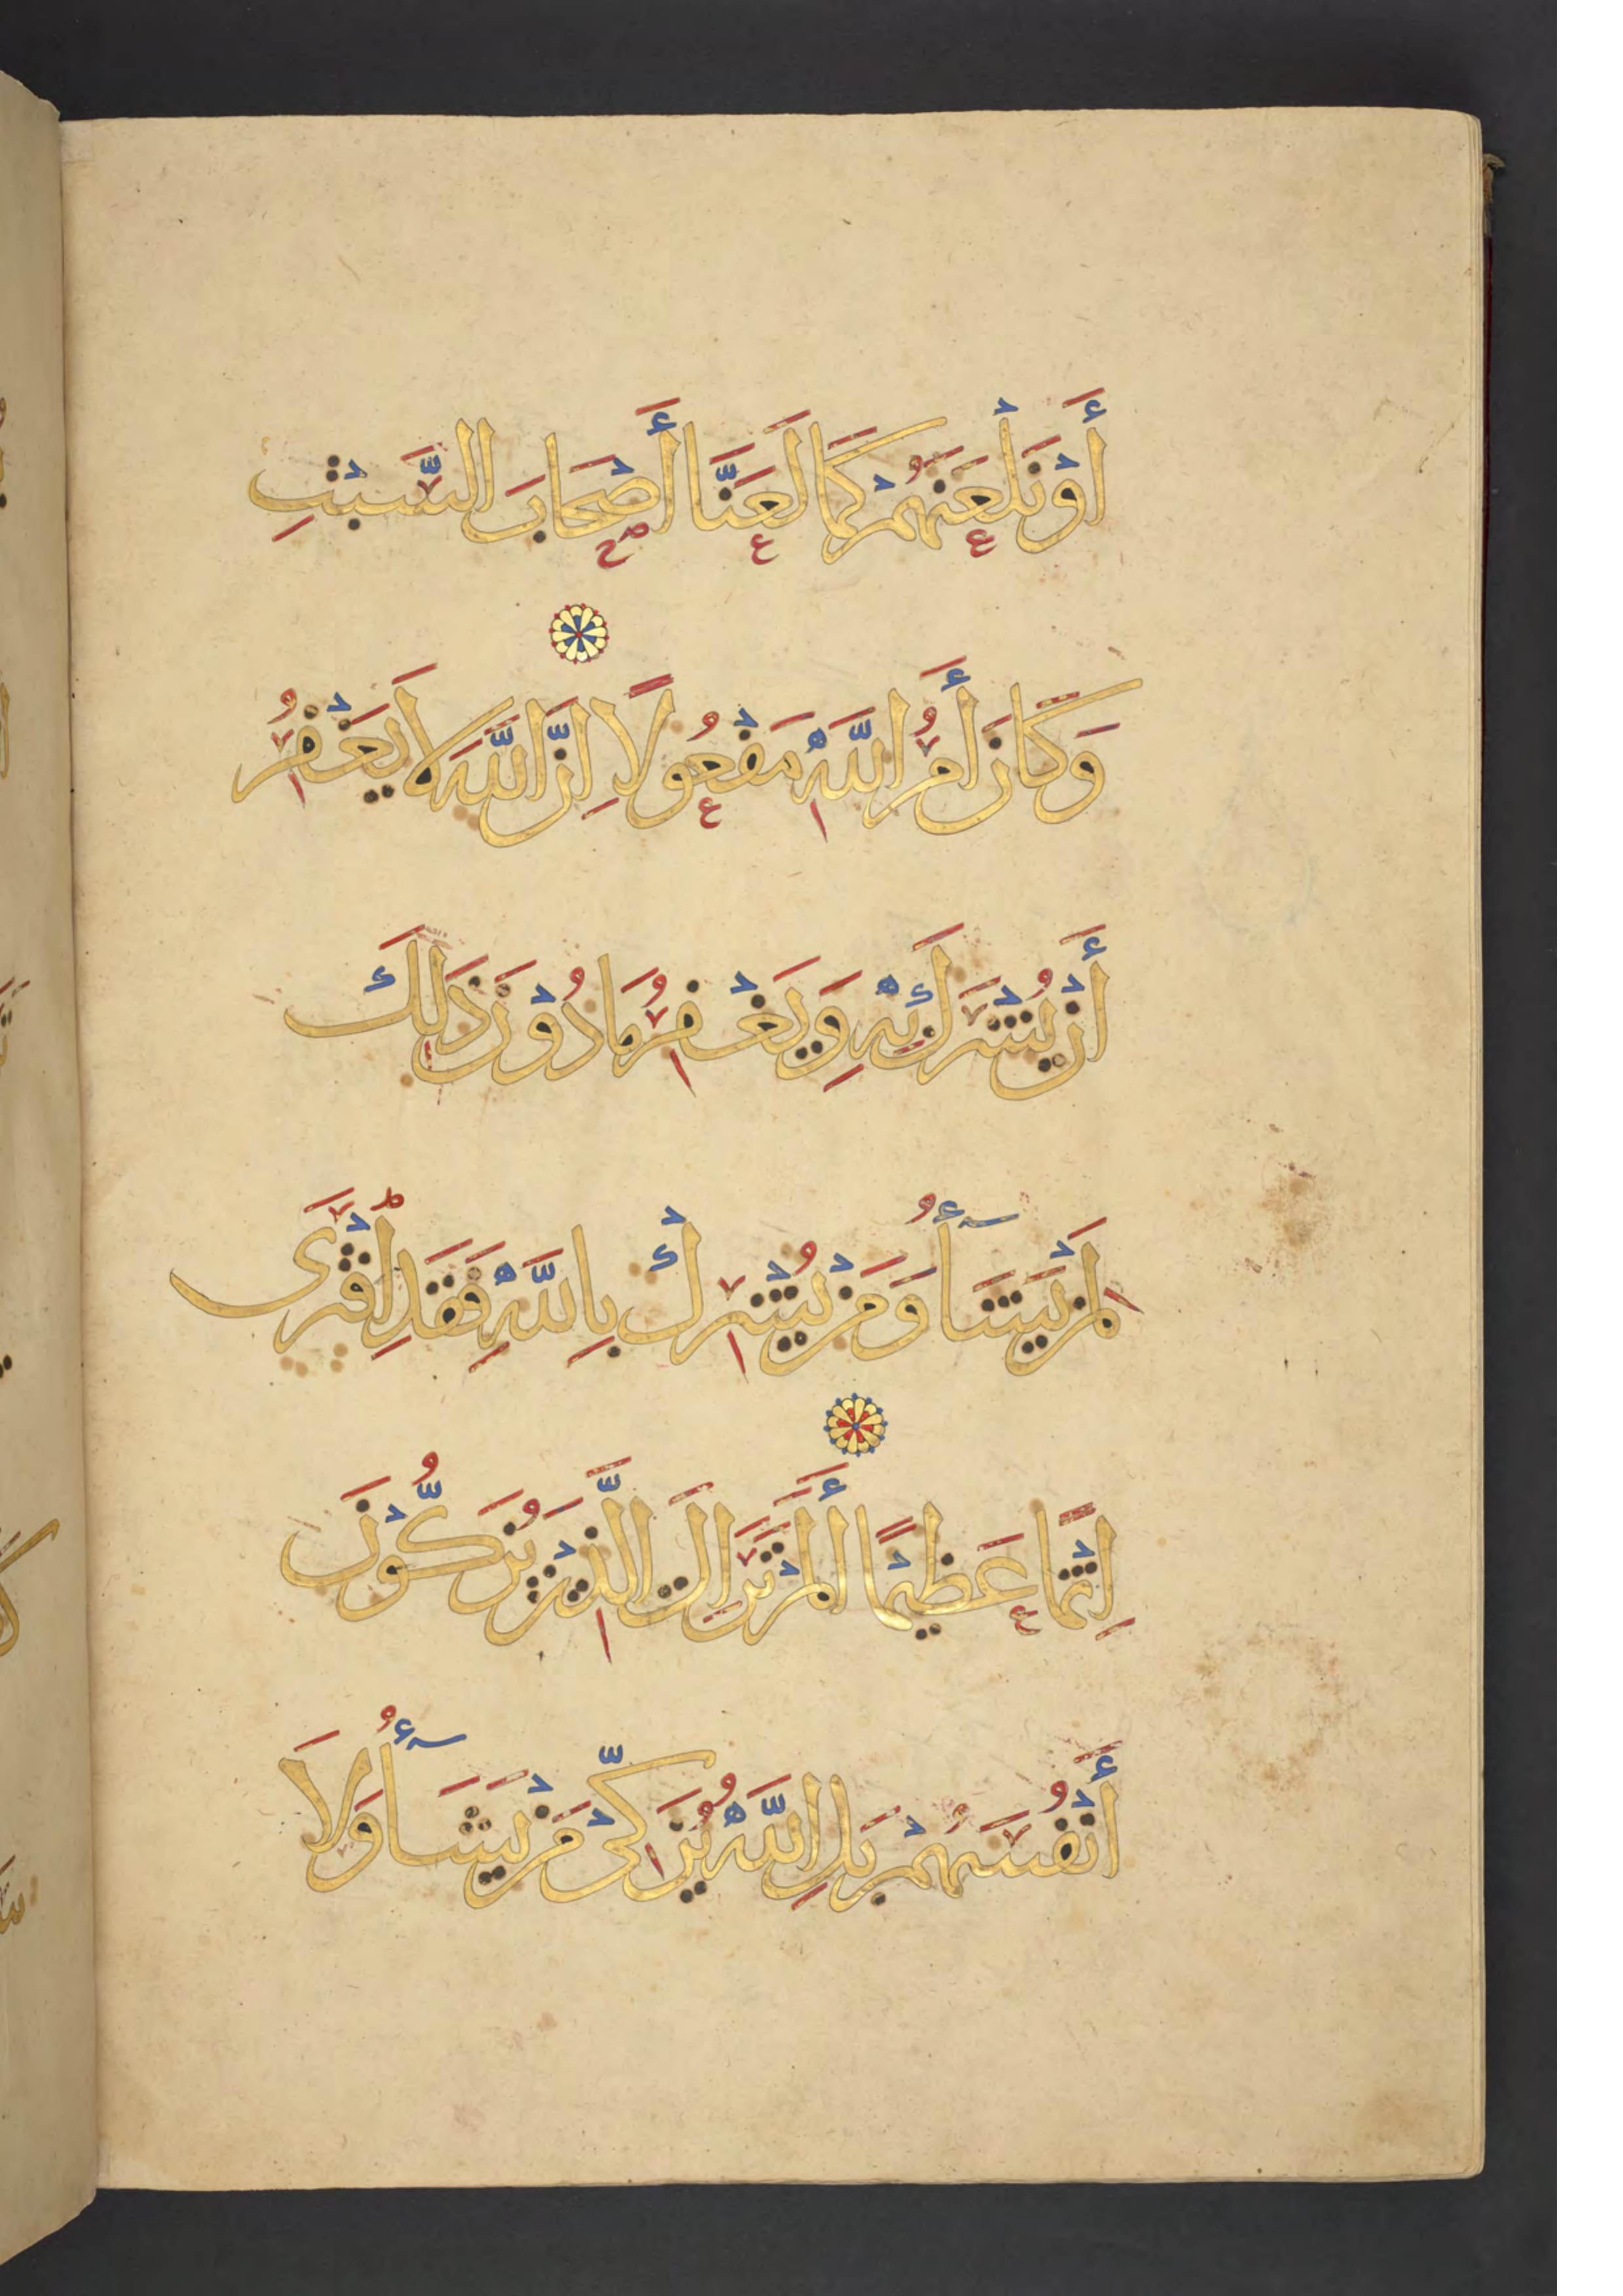 أَوْ نَلْعَنَهُمْ كَمَا لَعَنَّا أَصْحَابَ السَّبْتِ
وَكَانَ أَمْرُ اللَّهِ مَفْعُولًا إِنَّ اللَّهَ لَا يَغْفِرُ
أَنْ يُشْرَكَ بِهِ وَيَغْفِرُ مَا دُوْنَ ذَلِكَ
لِمَنْ يَشَأُ وَمَنْ يُشْرِكْ بِاللَّهِ فَقَدِ افْتَرَى
إِثْمًا عَظِيْمًا أَلَمْ تَرَ إِلَى الَّذِيْنَ يُزَكُّوْنَ
أَنْفُسَهُمْ بَلِ اللَّهُ يُزَكِّيْ مَنْ يَشَأُ وَلَا